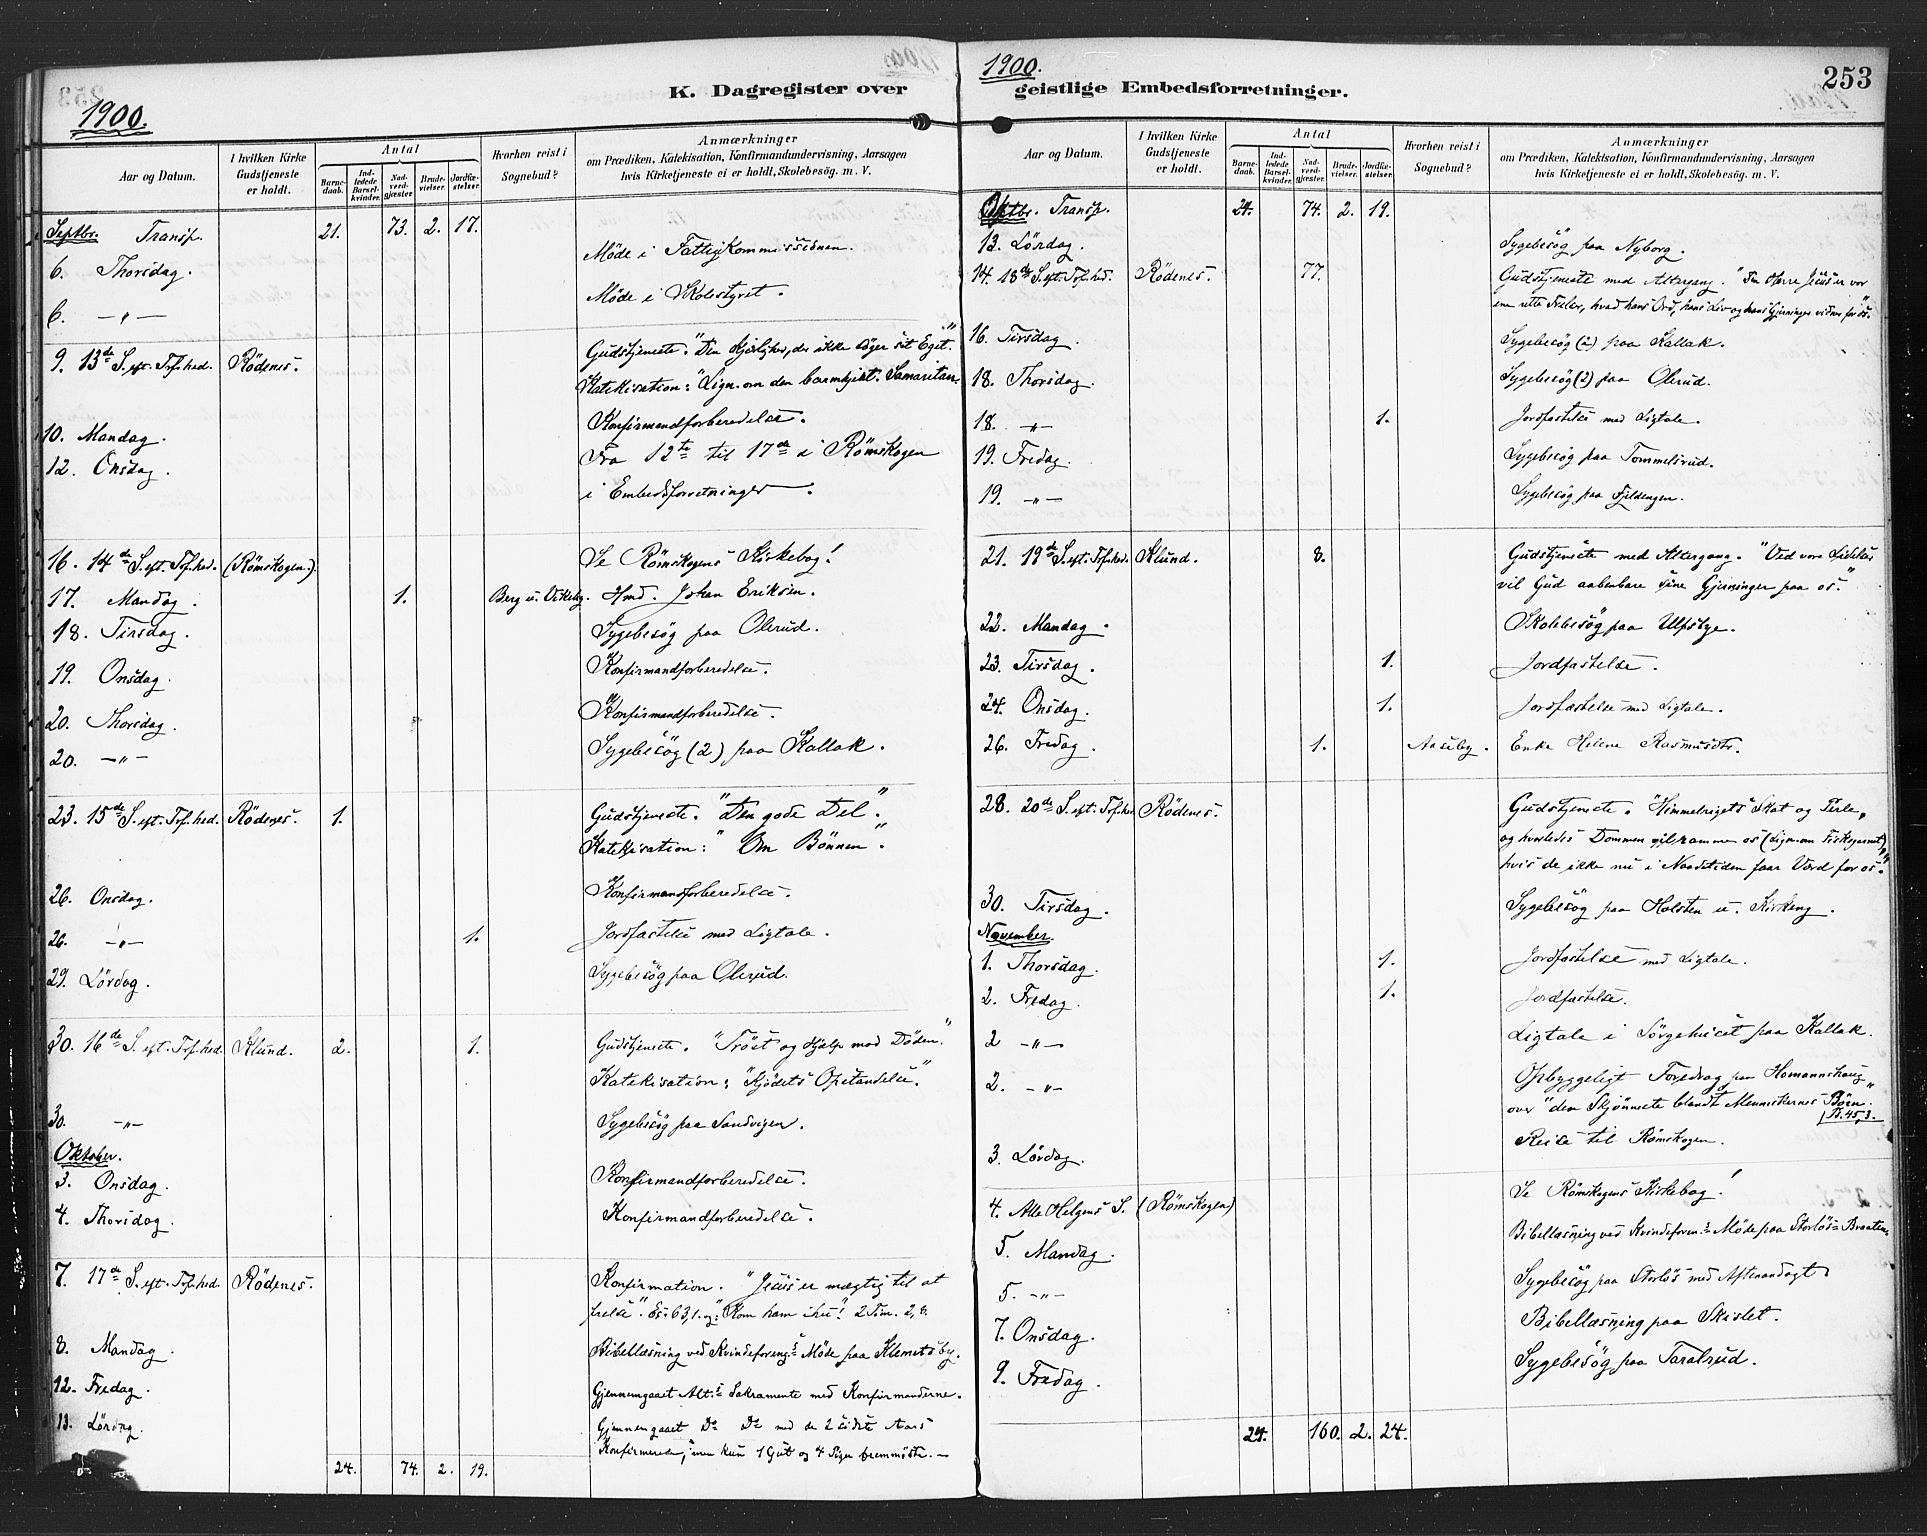 1900.
K. Dagregister over
Aar og Datum.
I hvilken Kirke Gudstjeneste er holdt.
Antal
Barnedaab.
Indledede Barselkvinder.
Nadverdgjæster
Brudevielser.
Jordfæstelser.
Hvorhen reist i Sognebud?
Anmærkninger
om Prædiken, Katekisation, Konfirmandundervisning, Aarsagen
hvis Kirketjeneste ei er holdt, Skolebesøg. m. V.
Septbr. Transp. 21. 73. 2. 17.
6. Thorsdag. Møde i Fattigkommissionen.
6. —„— Møde i Skolestyret.
9. 13de S. eft. Tref.hed. Rödenes. Gudstjeneste. "Den Kjærlighed, der ikke søger sit Eget."
Katekisation: "Lign. om den barmhjert. Samaritan.
10. Mandag. Konfirmandforberedelse.
12. Onsdag. Fra 12te til 17de i Römskogen
i Embedsforretninger.
16. 14de S. eft. Tref.hed. (Römskogen.) Se Römskogens Kirkebog!
17. Mandag. 1. Berg u. Virkeby. Hmd. Johan Eriksen.
18. Tirsdag. Sygebesög paa Olerud.
19. Onsdag. Konfirmandforberedelse.
20. Thorsdag. Konfirmandforberedelse.
20. —„— Sygebesög (2) paa Kallak.
23. 15de S. eft. Tref.hed. Rödenes. 1. Gudstjeneste. "Den gode Del".
Katekisation: "Om Bönnen".
26. Onsdag. Konfirmandforberedelse.
26. —„— 1. Jordfæstelse med Ligtale.
29. Lördag. Sygebesög paa Olerud.
30. 16de S. eft. Tref.hed. Klund. 2. 1. Gudstjeneste. "Tröst og Hjælp mod Döden."
Katekisation: "Kjödets Opstandelse".
30. —„— Sygebesög paa Sandvigen.
Oktober.
3. Onsdag. Konfirmandforberedelse.
4. Thorsdag. Konfirmandforberedelse.
7. 17de S. eft. Tref.hed. Rödenes. Konfirmation. "Jesus er mægtig til at
frelse". Es. 63,1. og: "Kom ham ihu!" 2 Tim. 2,8.
8. Mandag. Bibellæsning ved Kvindeforeng.s Möde paa Klemetsby.
12. Fredag. Gjennemgaaet Alt.s Sakramente med Konfirmanderne.
13. Lördag. Gjennemgaaet Do Do med de 2 sidste Aars
Konfirmerede, men kun 1 Gut og 4 Piger fremmöste. —
24. 74. 2. 19.
1900.
geistlige Embedsforretninger.
253
Aar og Datum.
I hvilken Kirke Gudstjeneste er holdt.
Antal
Barnedaab.
Indledede Barselkvinder.
Nadverdgjæster.
Brudevielser.
Jordfæstelser.
Hvorhen reist i Sognebud?
Anmærkninger
om Prædiken, Katekisation, Konfirmandundervisning, Aarsagen
hvis Kirketjeneste ei er holdt, Skolebesøg. m. V.
Oktbr. Transp. 24. 74. 2. 19.
13. Lördag. Sygebesög paa Nyborg.
14. 18de S. eft. Tref.hed. Rödenes. 77. Gudstjeneste med Altergang. "Den Herre Jesus er vor
ene rette Frelser, hvad hans Ord, hans Liv og hans Gjerninger vidner for os."
16. Tirsdag. Sygebesög (2) paa Kallak.
18. Thorsdag. Sygebesög (2) paa Olerud.
18. —„— 1. Jordfæstelse med Ligtale.
19. Fredag. Sygebesög paa Tommelsrud.
19. —„— Sygebesög paa Fjeldengen.
21. 19de S. eft. Tref.hed. Klund. 8. Gudstjeneste med Altergang. "Ved vore Lidelser
vil Gud aabenbare sine Gjerninger paa os."
22. Mandag. Skolebesög paa Ulfsbye.
23. Tirsdag. 1. Jordfæstelse.
24. Onsdag. 1. Jordfæstelse med Ligtale.
26. Fredag. 1. Aaseby. Enke Helene Rasmusdtr.
28. 20de S. eft. Tref.hed. Rödenes. Gudstjeneste. "Himmelrigets Skat og Perle,
og hvorledes Dommen vil ramme os (Lign. om Fiskegarnet),
hvis de ikke nu i Naadetiden faar Værd for os."
30. Tirsdag. Sygebesög paa Holsten u. Kirkeng.
November.
1. Thorsdag. 1. Jordfæstelse med Ligtale.
2. Fredag. 1. Jordfæstelse.
2 —„— Ligtale i Sörgehuset paa Kallak.
2. —„— Opbyggeligt Foredrag paa Homannshaug
over "den Skjönneste blandt Menneskernes Börn."
Ps. 45,3.
3. Lördag. Reise til Römskogen.
4. Alle Helgens S. (Römskogen) Se Römskogens Kirkebog!
5. Mandag. Bibellæsning ved Kvindeforen.s Möde paa Storlös-Braaten.
5. —„— Sygebesög paa Storlös med Aftenandagt.
7. Onsdag. Bibellæsning paa Skislet.
9. Fredag. Sygebesög paa Taralrud.
24. 160. 2. 24.